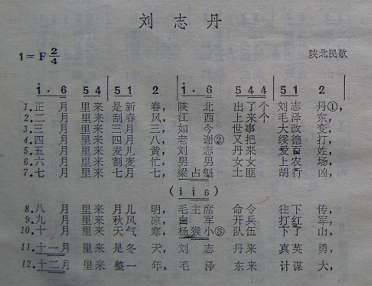 刘志丹
1=F 2/4 陕北民歌
i·6 5 4 5 1 2 i·6 5 4 4 5 1 2
1.正月里来是新春，陕北出了个刘志丹①，
2.二月里来刮春风，江西上来个毛泽东，
3.三月里来三月三，如今世事大改变，
4.四月里来四月八，老谢②又把绥德打，
5.五月里来麦儿黄，刘志丹来爱百姓，
6.六月里来割麦忙，男男女女上农场，
7.七月里来七月七，梁占魁土匪胡行凶，
(i i 6)
8.八月里来月儿明，毛主席命令往下传，
9.九月里来秋风凉，白军开兵打红军，
10.十月里来天气寒，杨猴小③队伍下了山，
11.十一月里来是冬天，刘志丹来真英勇，
12.十二月里来整一年，毛泽东来计谋大，